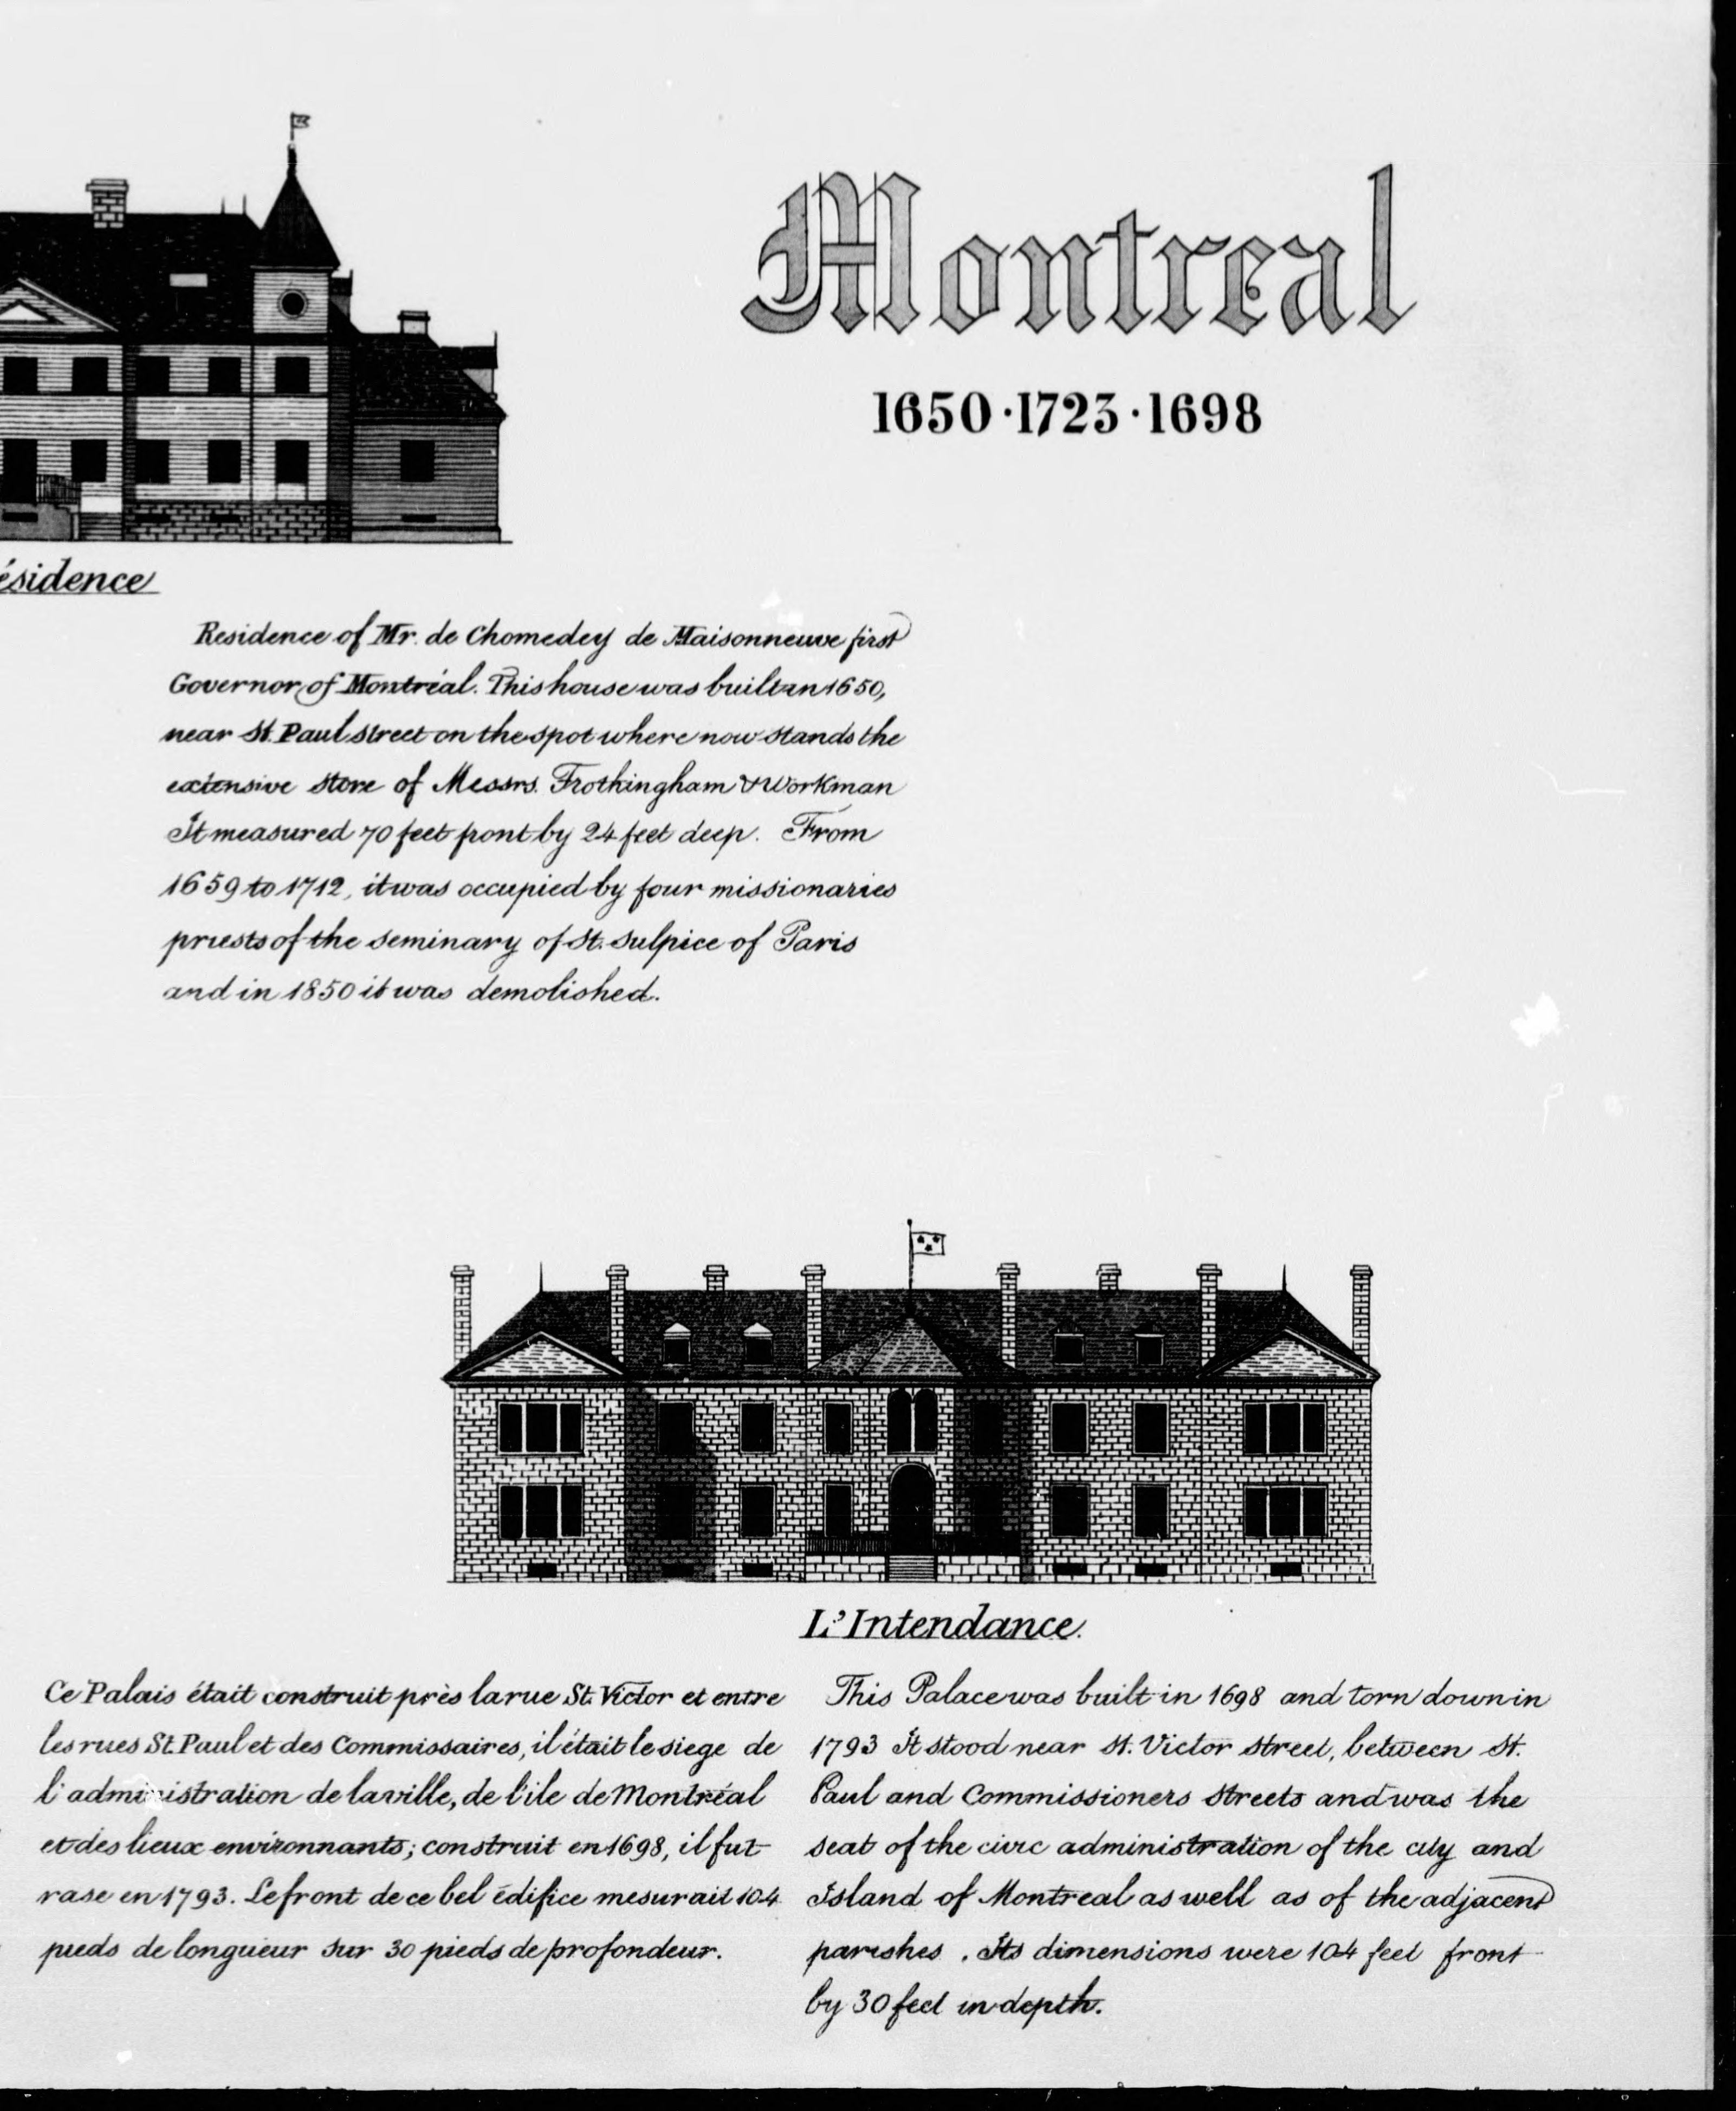 Montreal
1650·1723·1698
ésidence
Residence of Mr. de Chomedey de Maisonneuve first
Governor, of Montréal. This house was built in 1650,
near St. Paul street on the spot where now stands the
extensive store of Messrs. Frothingham & Workman
It measured 70 feet front by 24 feet deep. From
1659 to 1712, it was occupied by four missionaries
priests of the seminary of St. Sulpice of Paris
and in 1850 it was demolished.
L'Intendance.
Ce Palais était construit près la rue St. Victor et entre
les rues St. Paul et des Commissaires, il était le siege de
l'administration de la ville, de l'ile de Montréal
et des lieux environnants; construit en 1698, il fut
rase en 1793. Le front de ce bel édifice mesurait 104
pieds de longueur sur 30 pieds de profondeur.
This Palace was built in 1698 and torn down in
1793 It stood near St. Victor street, between St.
Paul and Commissioners streets and was the
seat of the civic administration of the city and
Island of Montreal as well as of the adjacent
parishes. Its dimensions were 104 feet front
by 30 feet in depth.